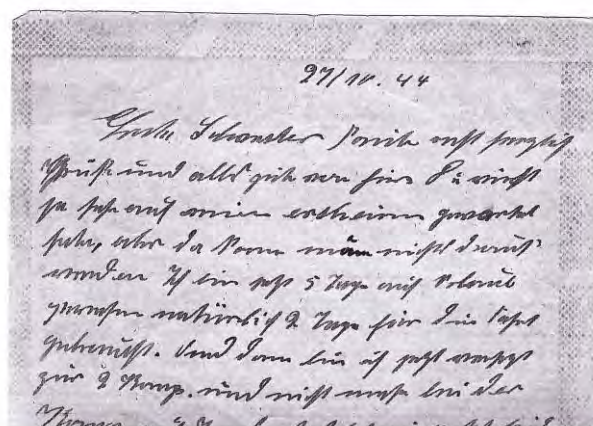 27/10. 44
Gute Schwester Familie recht herzlich
Grüße und alles gute von hier
ja sehr auf mein erscheinen gewartet
habe, aber da kann man nichts draus
werden Ich bin jetzt 5 Tage auf Urlaub
gewesen natürlich 2 Tage für die Fahrt
gebraucht. Und dann bin ich jetzt versetzt
zur 2 Komp. und nicht mehr bei der